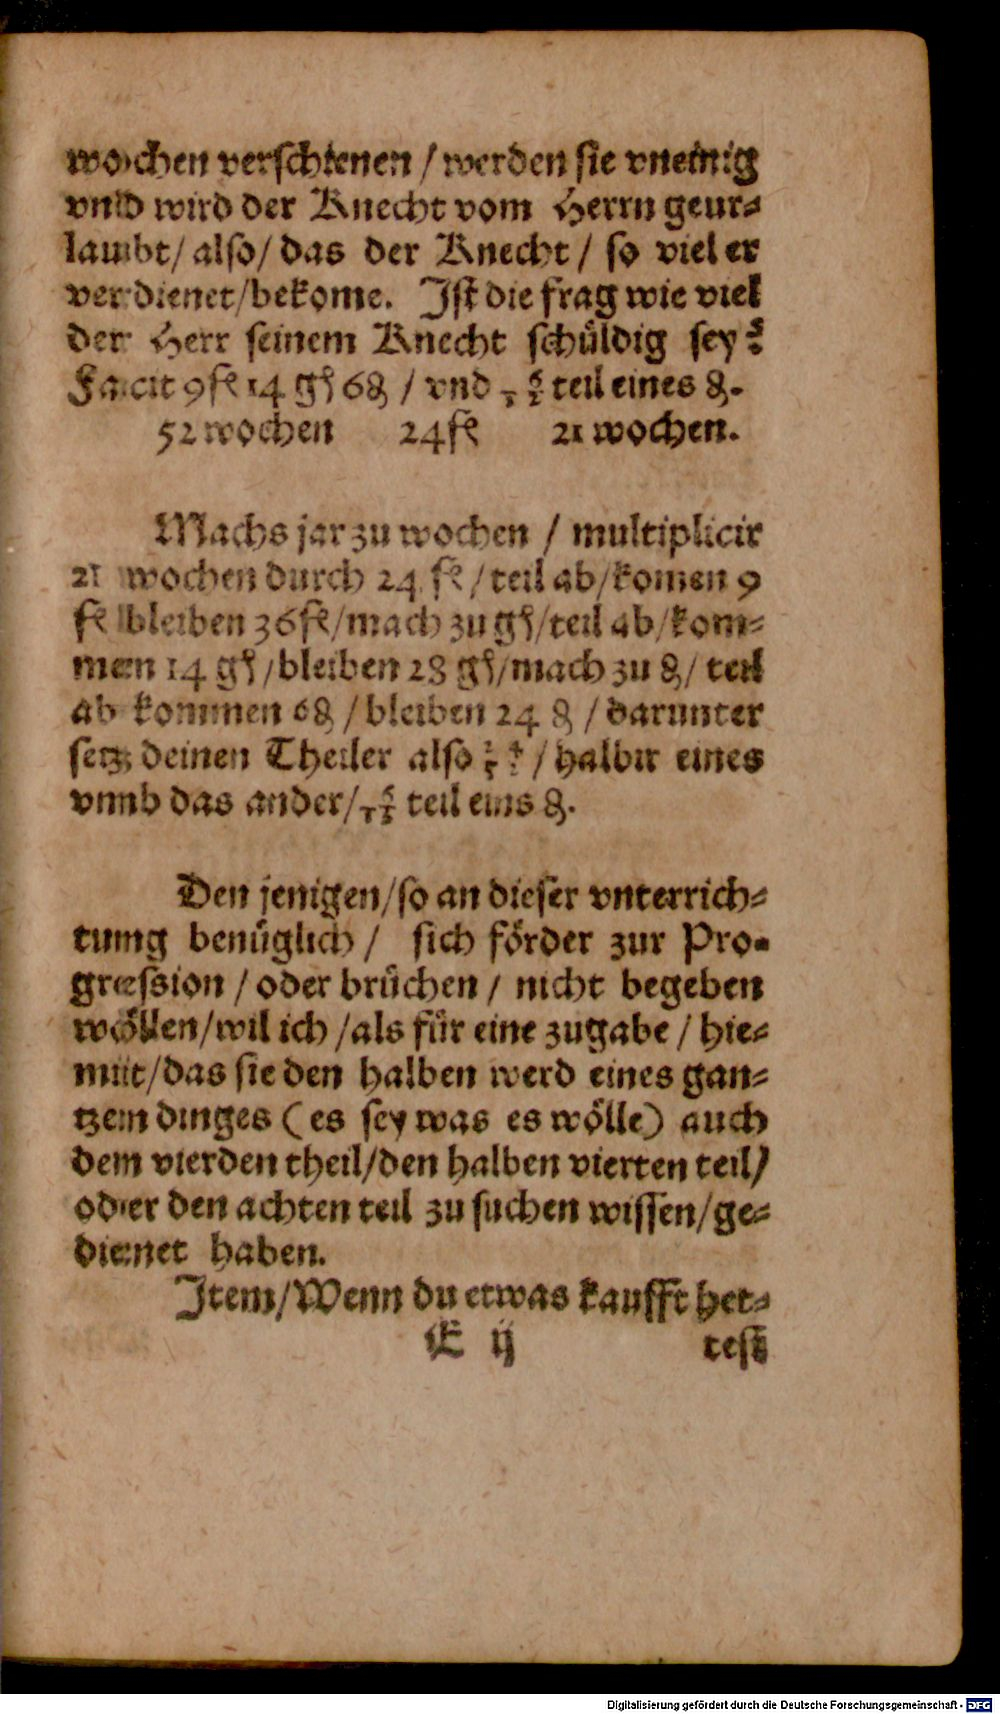 wochen verschienen / werden sie vneinig
vnd wird der Knecht vom Herrn geur⸗
laubt / also / das der Knecht / so viel er
verdienet / bekome. Jst die frag wie viel
der Herr seinem Knecht schüldig sey?
Facit 9 fl 14 gſ 6 ₰ / vnd 6/13 teil eines ₰.
52 wochen 24 fl 21 wochen.
Machs jar zu wochen / multiplicir
21 wochen durch 24 fl / teil ab / komen 9
fl bleiben 36 fl / mach zu gſ / teil ab / kom⸗
men 14 gſ / bleiben 28 gſ / mach zu ₰ / teil
ab kommen 6 ₰ / bleiben 24 ₰ / darunter
setz deinen Theiler also 24/52 / halbir eines
vnnd das ander / 6/13 teil eins ₰.
Den jenigen / so an dieser vnterrich⸗
tung benüglich / sich förder zur Pro⸗
gression / oder brüchen / nicht begeben
wöllen / wil ich / als für eine zugabe / hie⸗
mit / das sie den halben werd eines gan⸗
tzen dinges (es sey was es wölle) auch
dem vierden theil / den halben vierten teil /
oder den achten teil zu suchen wissen / ge⸗
dienet haben.
Jtem / Wenn du etwas kaufft het⸗
E ij test
Digitalisierung gefördert durch die Deutsche Forschungsgemeinschaft - DFG